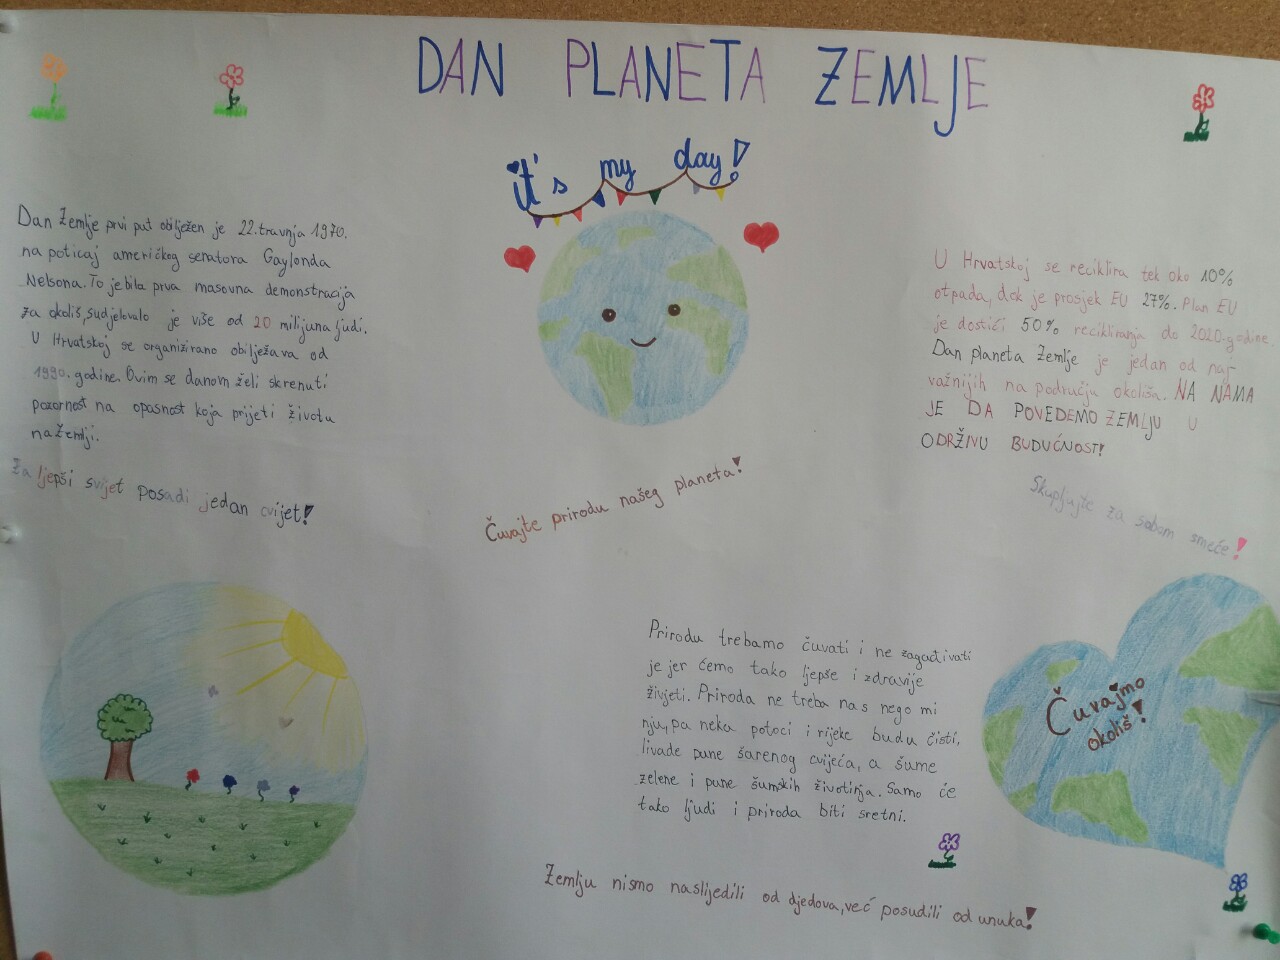 DAN PLANETA ZEMLJE
it's my day!
Dan Zemlje prvi put obilježen je 22.travnja 1970.
na poticaj američkog senatora Gaylonda
Nelsona. To je bila prva masovna demonstracija
za okoliš, sudjelovalo je više od 20 milijuna ljudi.
U Hrvatskoj se organizirano obilježava od
1990. godine. Ovim se danom želi skrenuti
pozornost na opasnost koja prijeti životu
na Zemlji.
Za ljepši svijet posadi jedan cvijet!
Čuvajte prirodu našeg planeta!
U Hrvatskoj se reciklira tek oko 10%
otpada, dok je prosjek EU 27%. Plan EU
je dostići 50% recikliranja do 2020.godine.
Dan planeta Zemlje je jedan od naj
važnijih na području okoliša. NA NAMA
JE DA POVEDEMO ZEMLJU U
ODRŽIVU BUDUĆNOST!
Skupljajte za sobom smeće!
Prirodu trebamo čuvati i ne zagađivati
je jer ćemo tako ljepše i zdravije
živjeti. Priroda ne treba nas nego mi
nju, pa neka potoci i rijeke budu čisti,
livade pune šarenog cvijeća, a šume
zelene i pune šumskih životinja. Samo će
tako ljudi i priroda biti sretni.
Čuvajmo
okoliš!
Zemlju nismo naslijedili od djedova, već posudili od unuka!